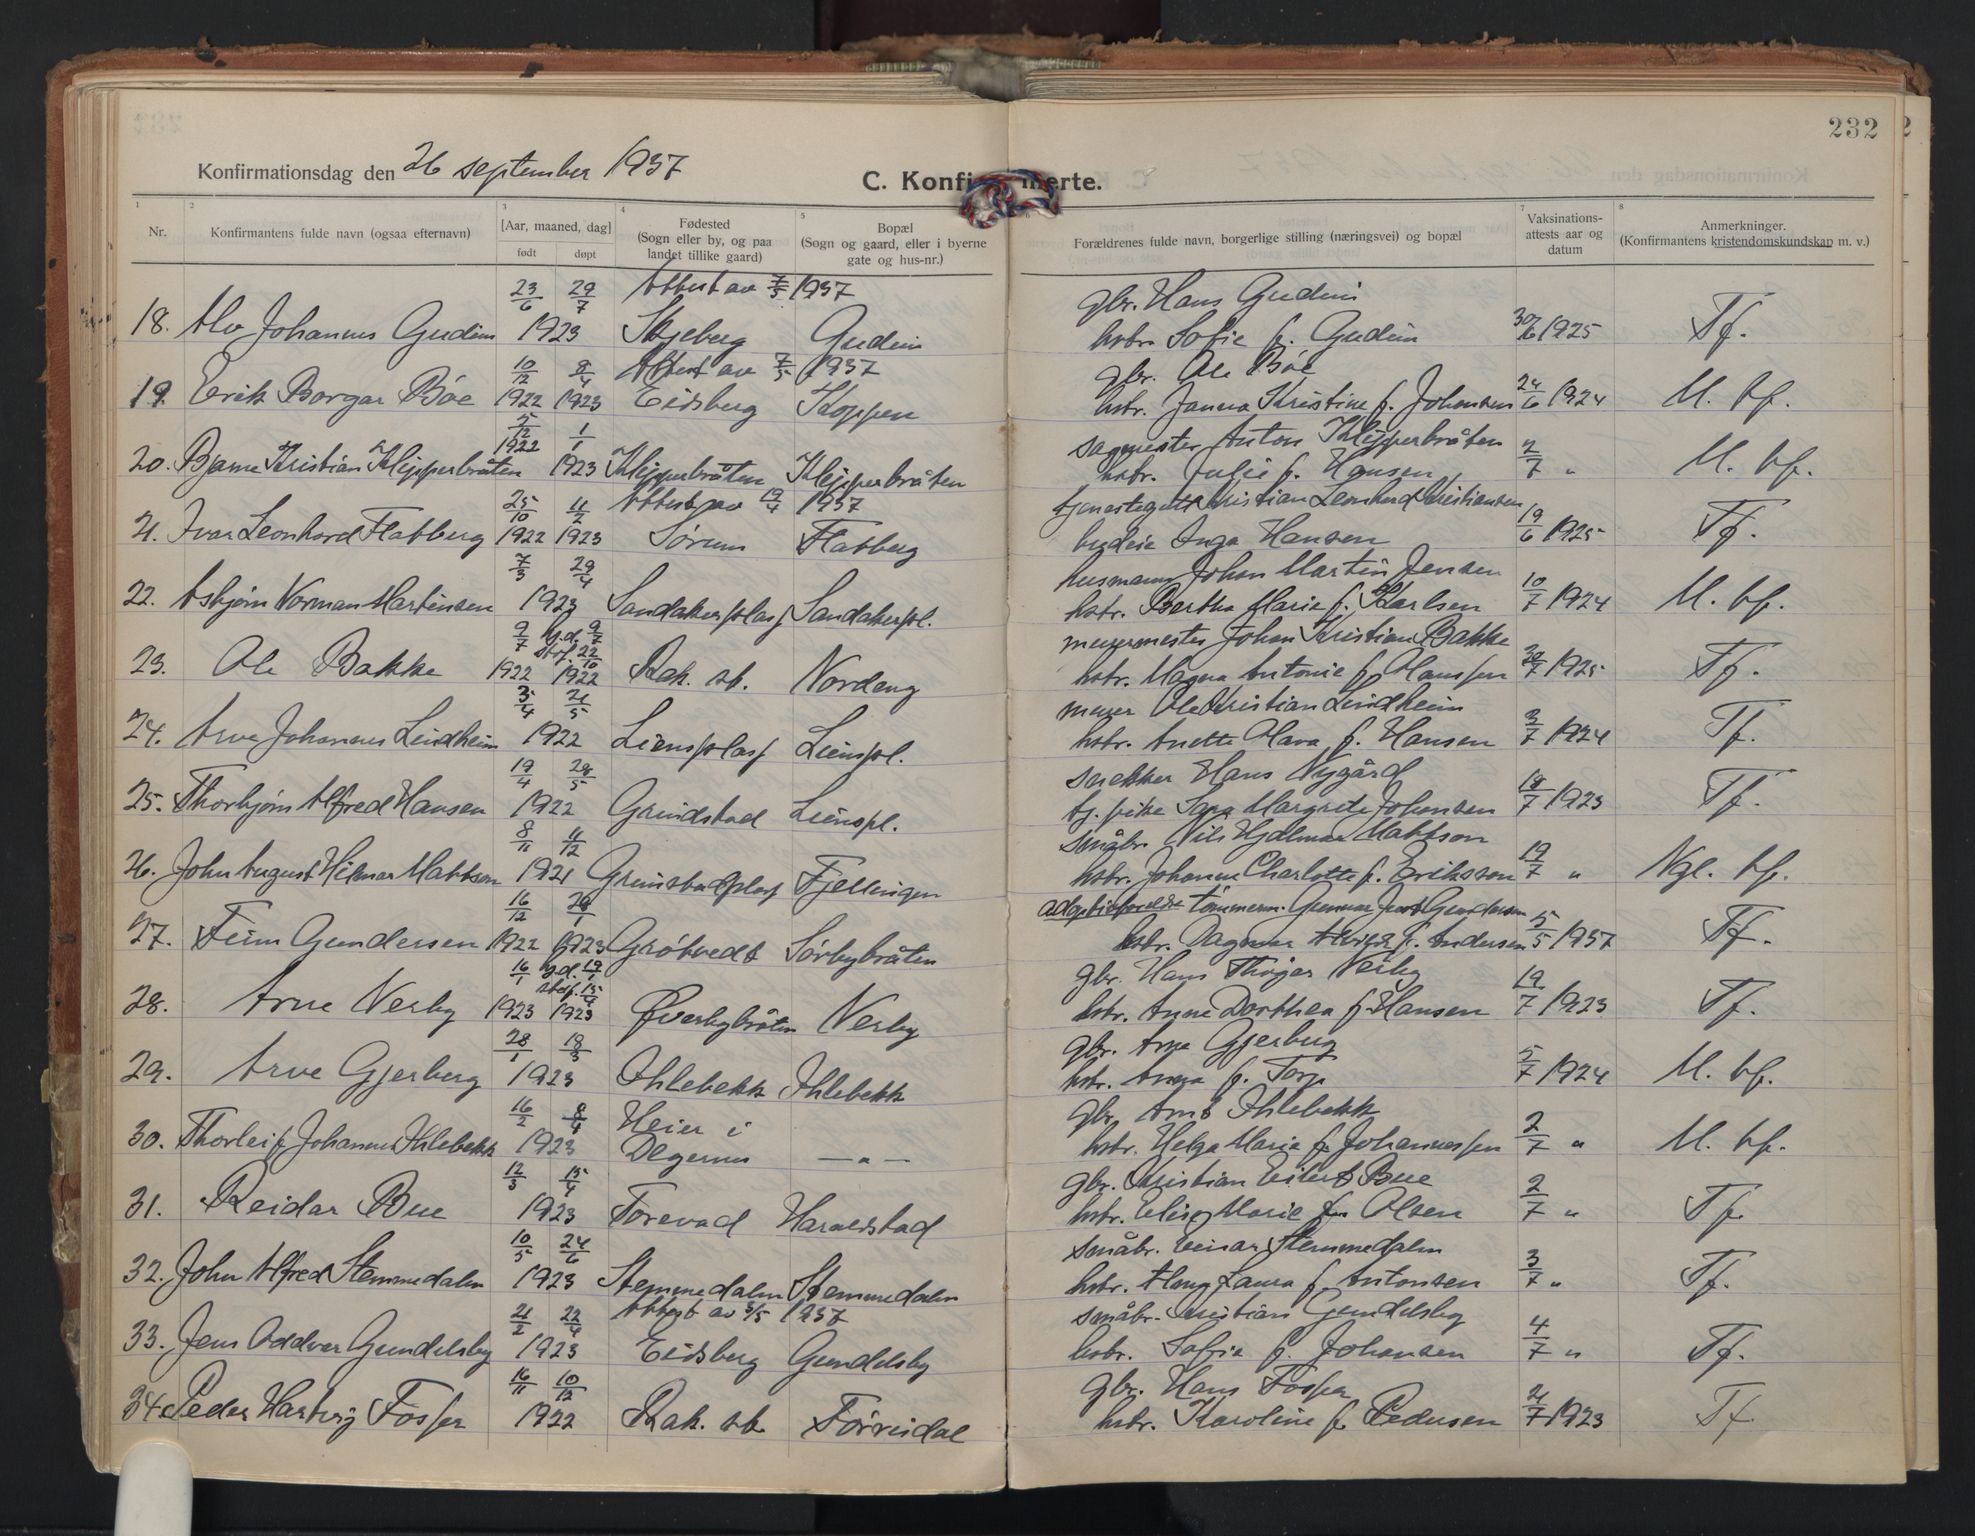 232
Konfirmationsdag den 26 september 1937
C. Konfi merte.
1 2 3 4 5 6 7 8
Nr. Konfirmantens fulde navn (ogsaa efternavn) [Aar, maaned, dag] født døpt Fødested (Sogn eller by, og paa landet tillike gaard) Bopæl (Sogn og gaard, eller i byerne gate og hus-nr.) Forældrenes fulde navn, borgerlige stilling (næringsvei) og bopæl Vaksinations-attests aar og datum Anmerkninger. (Konfirmantens kristendomskundskap m. v.)
23/6 29/7 Attest av 7/5 1937 gbr. Hans Gudim
18. Alv Johannes Gudim 1923 Skjeberg Gudim hstr. Sofie f. Gudim 30/6 1925 Tf.
10/12 8/4 Attest av 7/5 1937 gbr. Ole Bøe
19. Erik Borgar Bøe 1922 1923 Eidsberg Koppen hstr. Janna Kristine f. Johansen 24/6 1924 M. tf.
5/12 1/1 sagmester Anton Klypperbråten
20. Bjarne Kristian Klypperbråten 1922 1923 Klypperbråten Klypperbråten hstr. Julie f. Hansen 2/7 " M. tf.
25/10 11/2 Attest av 19/4 1937 tjenestegutt Kristian Leonhard Kristiansen
21. Ivar Leonhard Flatberg 1922 1923 Sørum Flatberg budeie Inga Hansen 19/6 1925 Tf.
7/3 29/4 husmann Johan Martin Jensen
22. Asbjørn Norman Martinsen 1923 Sandakerplass Sandakerpl. hstr. Bertha Marie f. Karlsen 10/7 1924 M. tf.
9/7 hj.d. 9/7 staf. 22/10 murermester Johan Kristian Bakke
23. Ole Bakke 1922 1922 Rak. st. Nordeng hstr. Magna Antonie f. Hanssen 30/7 1925 Tf.
3/4 21/5 murer Ole Kristian Lindheim
24. Arve Johannes Lindheim 1922 Liensplass Lienspl. hstr. Anette Olava f. Hansen 3/7 1924 Tf.
19/4 28/5 snekker Hans Nygård
25. Thorbjørn Alfred Hansen 1922 Grindstad Lienspl. tj. pike Sara Margrete Johansen 18/7 1923 Tf.
8/11 11/12 småbr. Nils Hjalmar Mattson
26. John August Hilmar Mattson 1921 Grimstadplass Fjellingen hstr. Johanne Charlotte f. Eriksson 19/7 " Ngl. tf.
16/12 28/1 adoptivforeldre tømmerm. Gunnar Gundersen
27. Finn Gundersen 1922 1923 Grøtvedt Sørbybråten hstr. Dagmar f. Andersen 5/5 1937 Tf.
16/1 hj.d. 19/1 staf. 15/4 gbr. Hans Thøger Nerby
28. Arne Nerby 1923 1923 Øverbybråten Nerby hstr. Anne Dorthea f. Hansen 19/7 1923 Tf.
28/1 18/3 gbr. Arne Gjerberg
29. Arve Gjerberg 1923 Ihlebekk Ihlebekk hstr. Anna f. Torp 5/7 1924 M. tf.
16/2 8/4 Heier i gbr. Arnt Ihlebekk
30. Thorleif Johannes Ihlebekk 1923 Degernes — " — hstr. Helga Marie f. Johannessen 2/7 " M. tf.
12/3 15/4 gbr. Kristian Eilert Bue
31. Reidar Bue 1923 Torevad Haraldstad hstr. Elise Marie f. Olsen 2/7 " Tf.
10/5 24/6 småbr. Einar Stemmedalen
32. John Alfred Stemmedalen 1923 Stemmedalen Stemmedalen hstr. Laura f. Antonsen 3/7 " Tf.
21/2 22/4 Attest av 3/5 1937 småbr. Kristian Gundelsby
33. Jens Oddvar Gundelsby 1923 Eidsberg Gundelsby hstr. Sofie f. Johansen 4/7 " Tf.
16/11 10/12 gbr. Hans Fosser
34. Peder Hartvig Fosser 1922 Rak. st. Førrisdal hstr. Karoline f. Pedersen 21/7 1923 Tf